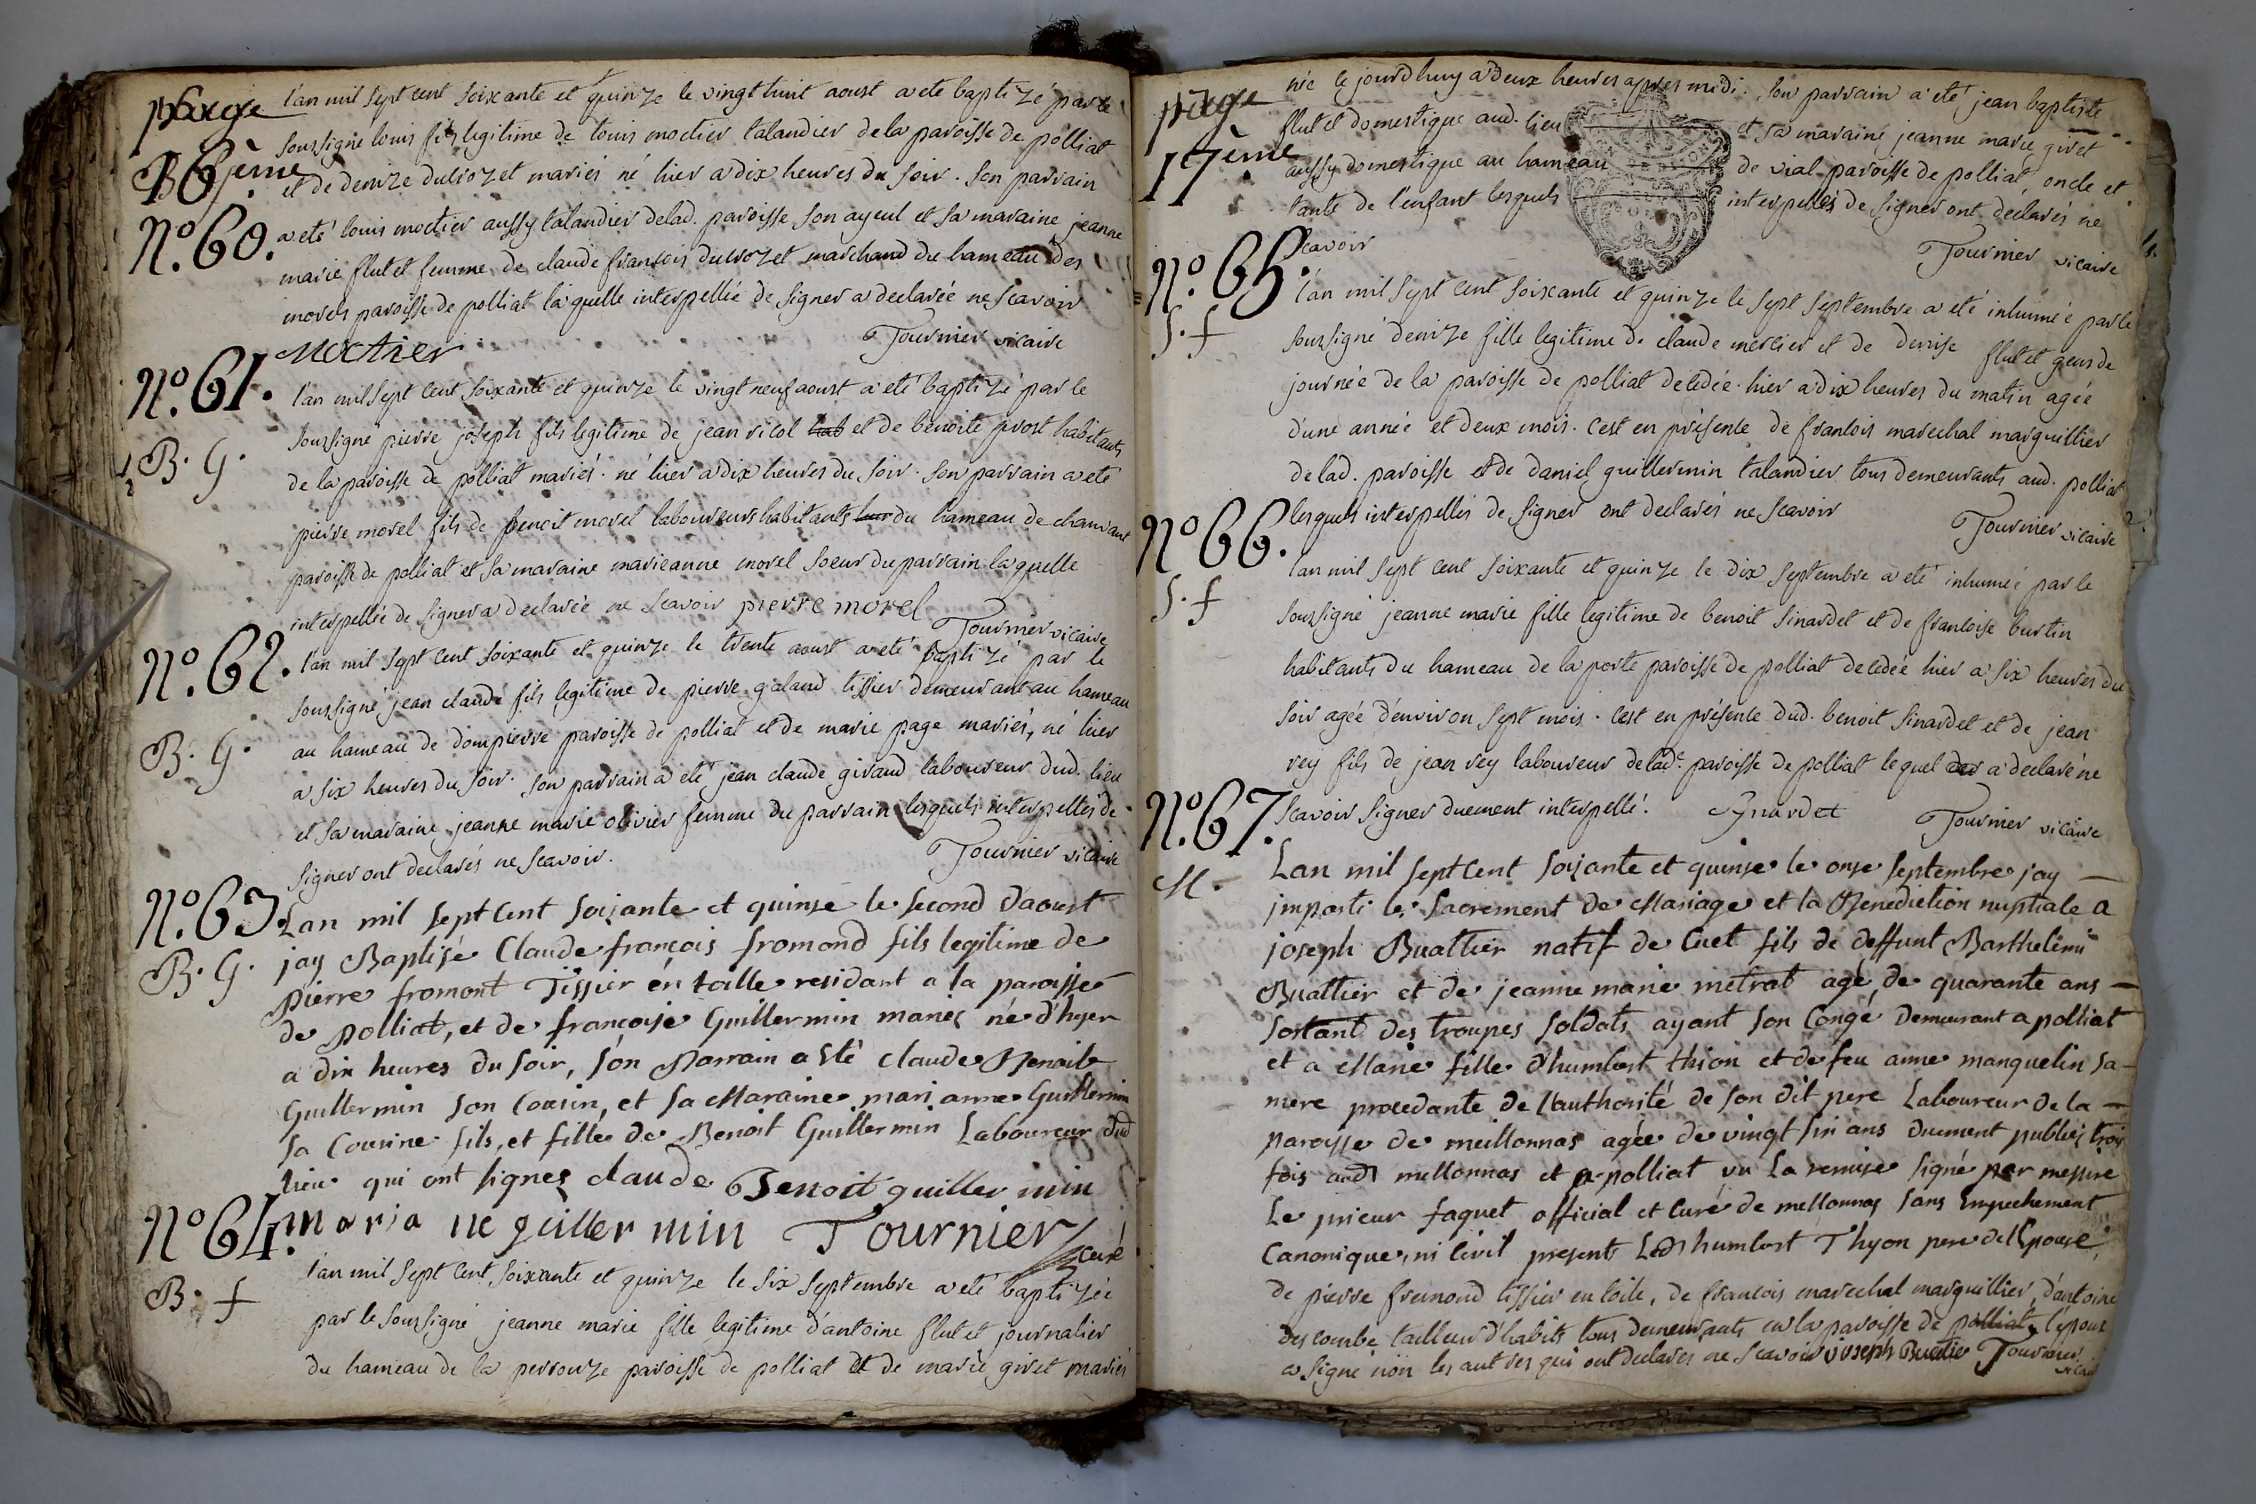 page
16ème
N.º 60.
l'an mil sept cent soixante et quinze le vingt huit aoust a eté baptizé par le
soussigné louis fils legitime de louis moctier talandier de la paroisse de polliat
et de denize duvozet mariés né hier a dix heures du soir. son parrain
a eté louis moctier aussy talandier delad. paroisse son ayeul et sa maraine jeanne
marie flutet femme de claude francois duvozet marchand du hameau des
morels paroisse de polliat laquelle interpellée de signer a declarée ne scavoir
Moctier Tournier vicaire
N.º 61.
B. G.
l'an mil sept cent soixante et quinze le vingt neuf aoust a eté baptizé par le
soussigné pierre joseph fils legitime de jean vicol hab et de benoite prost habitants
de la paroisse de polliat mariés. né hier a dix heures du soir. son parrain a eté
pierre morel fils de benoit morel laboureurs habitants du hameau de chanvant
paroisse de polliat et sa maraine marieanne morel soeur du parrain laquelle
interpellée de signer a declarée ne scavoir pierre morel
Tournier vicaire
N.º 62.
B. G.
l'an mil sept cent soixante et quinze le trente aoust a eté baptizé par le
soussigné jean claude fils legitime de pierre galand tissier demeurant au hameau
au hameau de dompierre paroisse de polliat et de marie page mariés, né hier
a six heures du soir. son parrain a eté jean claude giraud laboureur dud. lieu
et sa maraine jeanne marie olivier femme du parrain lesquels interpellés de
signer ont declarés ne scavoir. Tournier vicaire
N.º 63.
B. G.
Lan mil sept cent soixante et quinse le second daoust
jay Baptisé Claude françois fromond fils legitime de
pierre fromont Tissier en toille residant a la paroisse
de polliat, et de françoise Guillermin mariés né d'hyer
a dix heures du soir, son Parrain a eté claude Benoit
Guillermin son cousin, et sa Maraine mari anne Guillermin
sa Cousine fils, et fille de Benoit Guillermin Laboureur dud
lieu qui ont signes claude Benoit guiller min
maria ne guiller min Tournier curé
N.º 64.
B. f
l'an mil sept cent soixante et quinze le six septembre a eté baptizée
par le soussigné jeanne marie fille legitime d'antoine flutet journalier
du hameau de la perrouze paroisse de polliat et de marie givet mariés
page
17ème
née le jourdhuy a deux heures apres midi. son parrain a eté jean baptiste
flutet domestique aud. lieu et sa maraine jeanne marie givet
aussy domestique au hameau de vial paroisse de polliat, oncle et
tante de l'enfant lesquels interpellés de signer ont declarés ne
scavoir Tournier vicaire
N.º 65.
S. f
l'an mil sept cent soixante et quinze le sept septembre a eté inhumée par le
soussigné denize fille legitime de claude mercier et de denise flutet gens de
journée de la paroisse de polliat decedée hier a dix heures du matin agée
d'une année et deux mois. c'est en présence de francois marechal marguillier
delad. paroisse et de daniel guillermin talandier tous demeurants aud. polliat
lesquels interpellés de signer ont declarés ne scavoir Tournier vicaire
Nº 66.
S. f
l'an mil sept cent soixante et quinze le dix septembre a eté inhumée par le
soussigné jeanne marie fille legitime de benoit sinardet et de francoise burtin
habitants du hameau de la porte paroisse de polliat decedée hier a six heures du
soir agée d'environ sept mois. c'est en présence dud. benoit sinardet et de jean
rey fils de jean rey laboureur delade. paroisse de polliat lequel a declaré ne
scavoir signer duement interpellé. Synardet Tournier vicaire
N.º 67.
M.
Lan mil sept Cent soixante et quinse le onse septembre jay
imparti le Sacrement de Mariage et la Benediction nuptiale a
joseph Buattier natif de Cuet fils de deffunt Barthelemi
Buattier et de jeanne marie metrat agé de quarante ans
sortant des troupes soldats ayant son Congé Demeurant a polliat
et a Marie fille d'humbert thion et de feu anne manquelin sa
mere procedante de l'authorité de son dit pere Laboureur de la
paroisse de meillonnas agée de vingt six ans duement publiés trois
fois aud. mellonnas et a polliat vu la remise signé par messire
Le prieur faquet official et Curé de mellonnas sans Empechement
Canonique, ni Civil presents Led. humbert Thyon pere de l'Epouse
de pierre fremond tissier en toile, de francois marechal marguillier, d'antoine
descombe tailleur d'habits tous demeurants en la paroisse de polliat, l'époux
a signé non les autres qui ont declarés ne scavoir joseph Buatier Tournier
vicaire